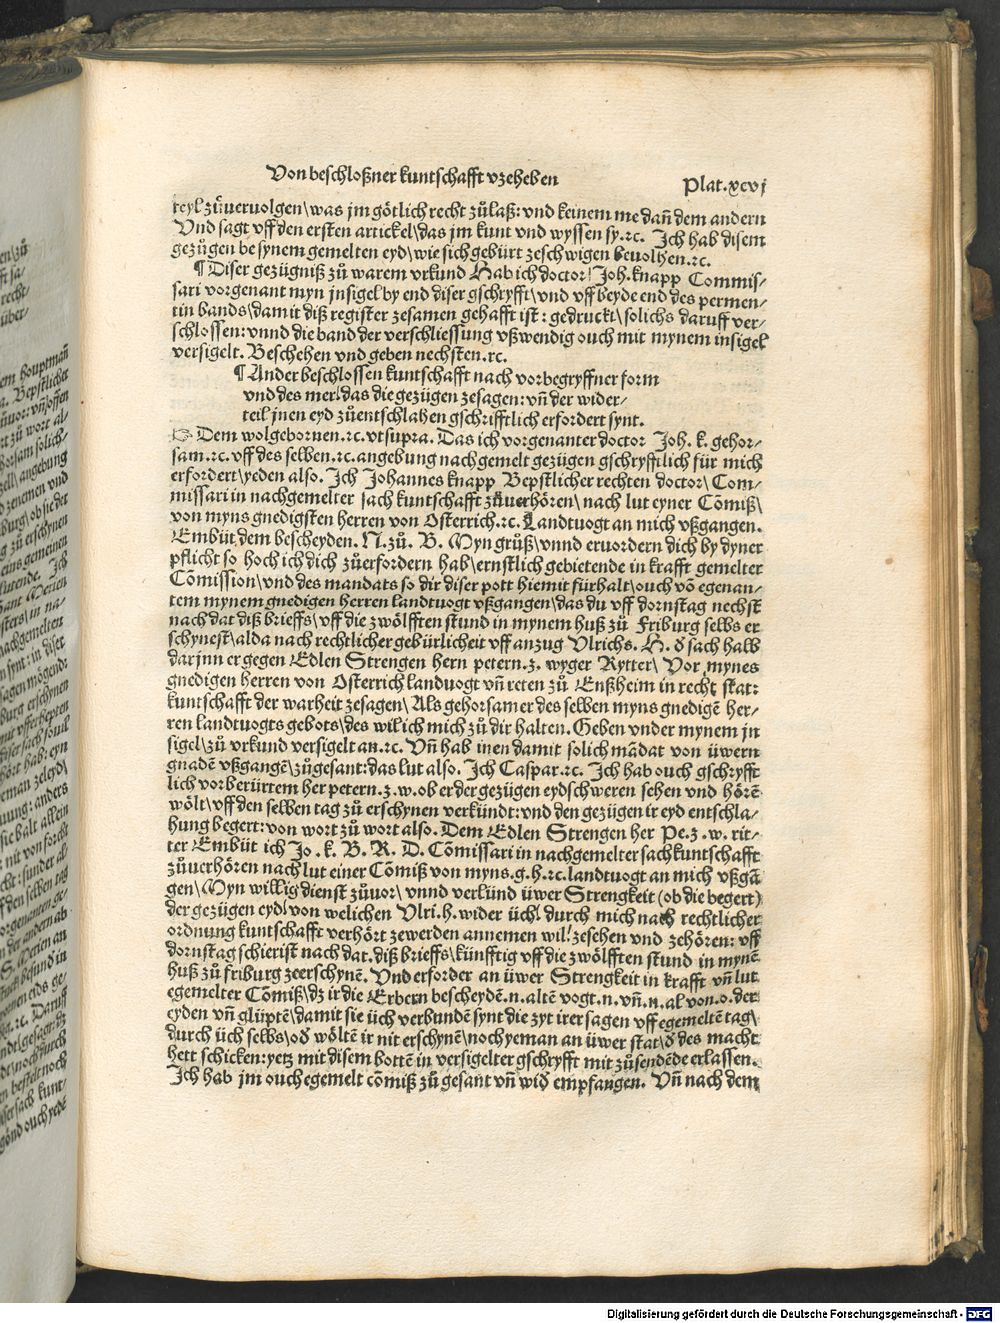 Von beschloßner kuntschafft vzeheben
Plat.xcvj
teyl zůueruolgen\was jm götlich recht zůlaß: vnd keinem me dañ dem andern
Vnd sagt vff den ersten artickel\das jm kunt vnd wyssen sy.⁊c. Ich hab disem
gezügen be synem gemelten eyd\wie sich gebürt zeschwigen beuolhen.⁊c.
¶ Diser gezügniß zů warem vrkund Hab ich doctor Joh. knapp Commis⸗
sari vorgenant myn jnsigel by end diser gschryfft\vnd vff beyde end des permen⸗
tin bands\damit diß register zesamen gehafft ist: gedruckt\solichs daruff ver⸗
schlossen: vnnd die band der verschliessung vßwendig ouch mit mynem insigel
versigelt. Beschehen vnd geben nechsten.⁊c.
¶ Ander beschlossen kuntschafft nach vorbegryffner form
vnd des mer\das die gezügen zesagen: vñ der wider⸗
teil jnen eyd zůentschlahen gschrifftlich erfordert synt.
☞ Dem wolgebornen.⁊c. vt supra. Das ich vorgenanter doctor Joh. k. gehor⸗
sam.⁊c. vff des selben.⁊c. angebung nachgemelt gezügen gschryfftlich für mich
erfordert\yeden also. Ich Johannes knapp Bepstlicher rechten doctor\Com⸗
missari in nachgemelter sach kuntschafft zůuerhören\nach lut eyner Cõmiß\
von myns gnedigsten herren von Osterrich.⁊c. Landtuogt an mich vßgangen.
Embüt dem bescheyden. N. zů. B. Myn grůß\vnnd eruordern dich by dyner
pflicht so hoch ich dich zůerfordern hab\ernstlich gebietende in krafft gemelter
Cõmission\vnd des mandats so dir diser pott hiemit fürhalt\ouch võ egenan⸗
tem mynem gnedigen herren landtuogt vßgangen\das du vff dornstag nechst
nach dat diß brieffs\vff die zwölfften stund in mynem huß zů Friburg selbs er
schynest\alda nach rechtlicher gebürlicheit vff anzug Vlrichs. H. ð sach halb
darjnn er gegen Edlen Strengen hern petern. z. wyger Rytter\Vor mynes
gnedigen herren von Osterrich landuogt vñ reten zů Enßheim in recht stat:
kuntschafft der warheit zesagen\Als gehorsamer des selben myns gnedigẽ her⸗
ren landtuogts gebots\des wil ich mich zů dir halten. Geben vnder mynem jn
sigel\zů vrkund versigelt an.⁊c. Vñ hab inen damit solich mãdat von üwern
gnadẽ vßgangẽ\zůgesant: das lut also. Ich Caspar.⁊c. Ich hab ouch gschryfft
lich vorberürtem her petern. z. w. ob er der gezügen eydschweren sehen vnd hörẽ
wölt\vff den selben tag zů erschynen verkündt: vnd den gezügen ir eyd entschla⸗
hung begert: von wort zů wort also. Dem Edlen Strengen her Pe. z. w. rit⸗
ter Embüt ich Jo. k. B. R. D. Cõmissari in nachgemelter sach kuntschafft
zůuerhören nach lut einer Cõmiß von myns. g. h. ⁊c. landtuogt an mich vßgã
gen\Myn willig dienst zůuor\vnnd verkünd üwer Strengkeit (ob die begert)
der gezügen eyd\von welichen Vlri. h. wider üch\durch mich nach rechtlicher
ordnung kuntschafft verhört zewerden annemen wil\zesehen vnd zehören: vff
dornstag schierist nach dat. diß brieffs\künfftig vff die zwölfften stund in mynẽ
huß zů friburg zeerschynẽ. Vnd erforder an üwer Strengkeit in krafft vñ lut
egemelter Cõmiß\dz ir die Erbern bescheydẽ. n. altẽ vogt. n. vñ. n. al von. o. der
eyden vñ glüptẽ\damit sie üch verbundẽ synt die zyt irer sagen vff egemeltẽ tag\
durch üch selbs\oð wöltẽ ir nit erschynẽ\noch yeman an üwer stat\ð des macht
hett schicken: yetz mit disem bottẽ in versigelter gschryfft mit zůsendẽde erlassen.
Ich hab jm ouch egemelt cõmiß zů gesant vñ wið empfangen. Vñ nach dem
Digitalisierung gefördert durch die Deutsche Forschungsgemeinschaft - DFG